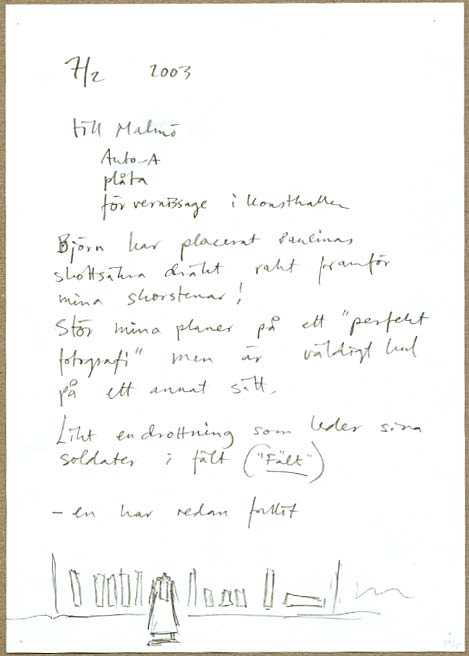 7/2 2003
till Malmö
Auto-A
plåta
för vernissage i konsthallen
Björn har placerat Paulinas
skottsäkra dräkt rakt framför
mina skorstenar!
Stör mina planer på ett "perfekt
fotografi" men är väldigt kul
på ett annat sätt.
Likt en drottning som leder sina
soldater i fält ("Fält")
– en har redan fallit